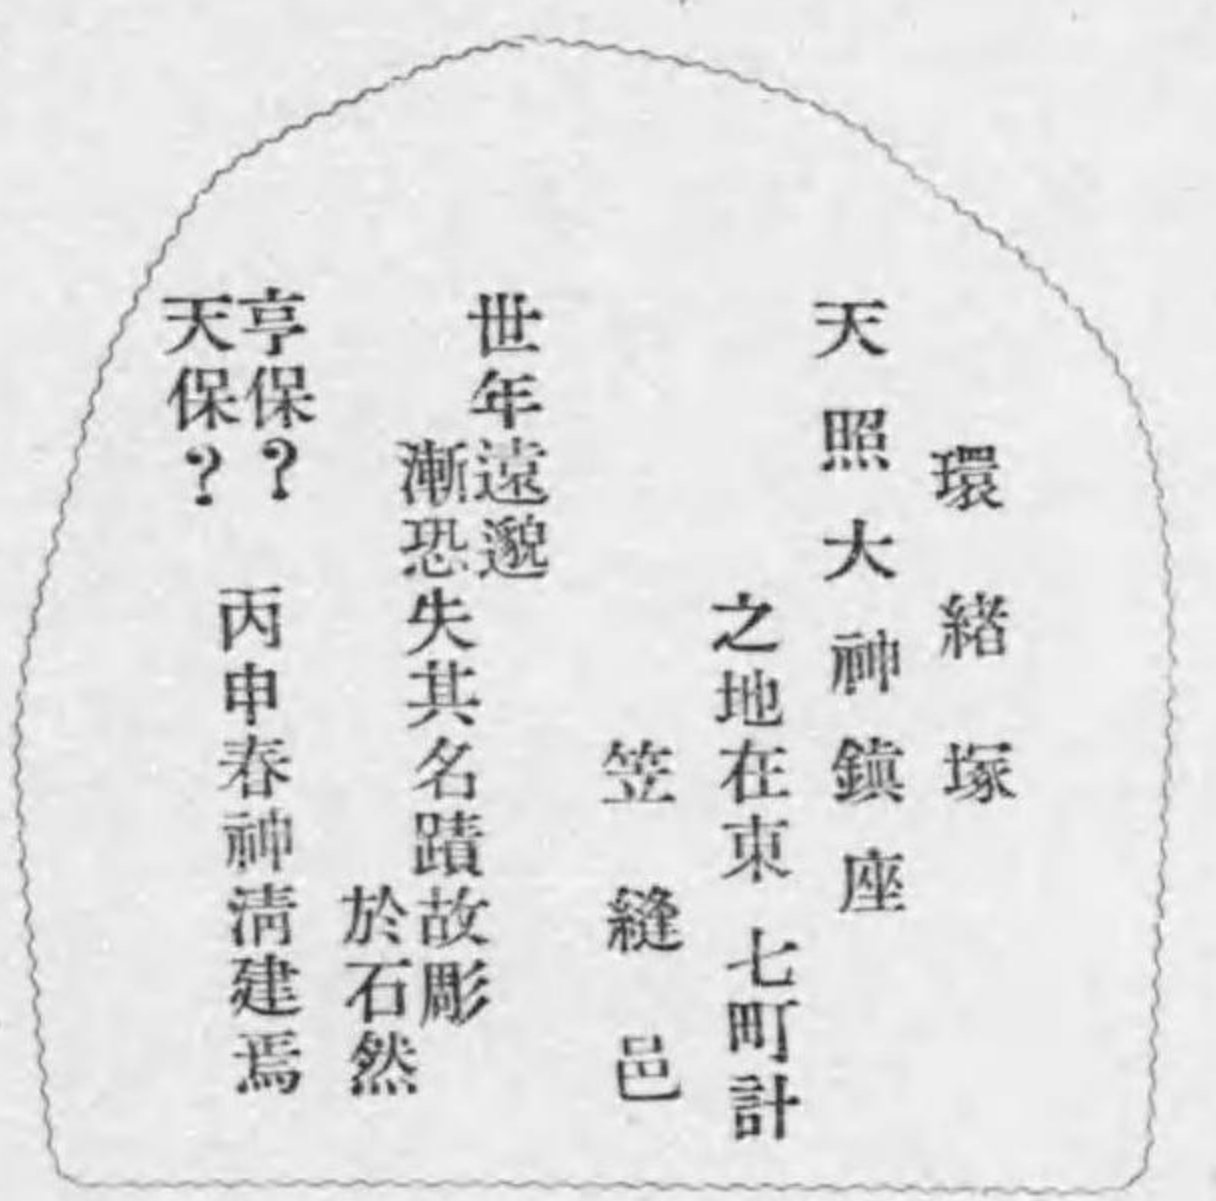 環緒塚
天照大神鎮座
之地在東七町計
笠縫邑
世年遠邈
漸恐失其名蹟故彫
於石然
亨保?
天保?
丙申春神淸建焉